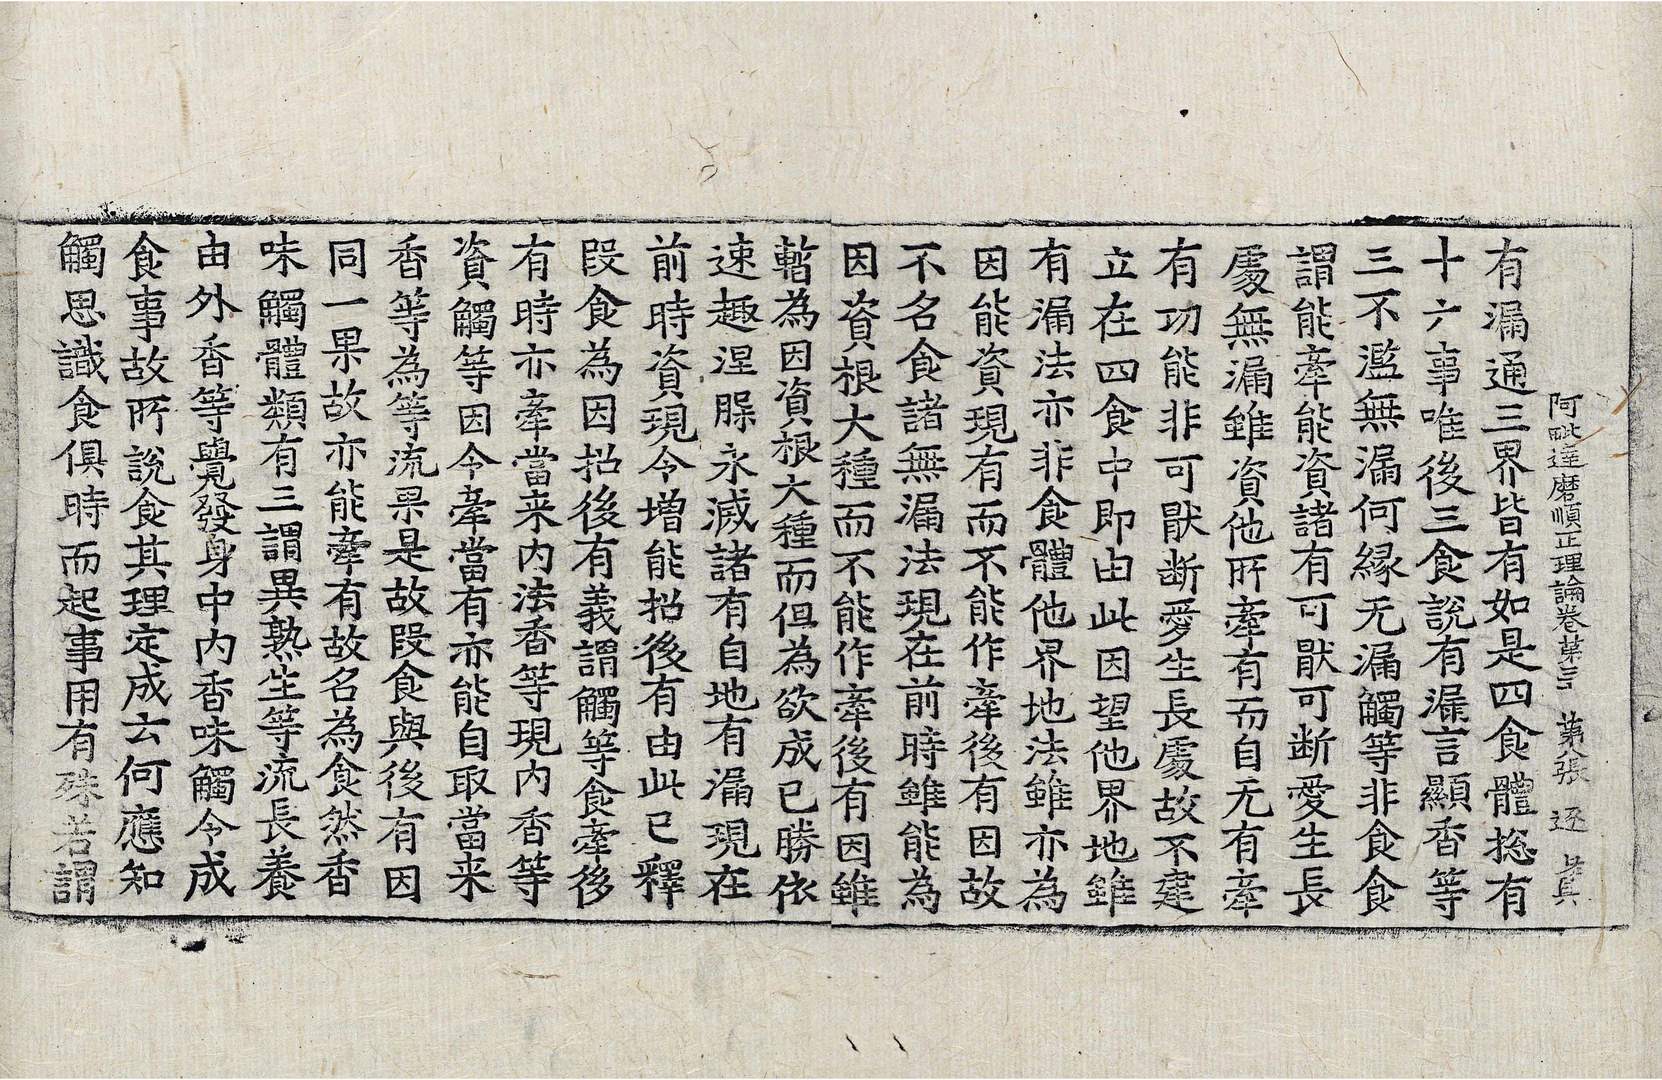 阿毗達磨順正理論卷第三十 第八張 逐
有漏通三界皆有如是四食體捴有
十六事唯後三食說有漏言顯香等
三不濫無漏何緣无漏觸等非食食
謂能牽能資諸有可猒可断愛生長
處無漏雖資他所牽有而自无有牽
有功能非可猒断愛生長處故不建
立在四食中即由此因望他界地雖
有漏法亦非食體他界地法雖亦為
因能資現有而不能作牽後有因故
不名食諸無漏法現在前時雖能為
因資根大種而不能作牽後有因雖
暫為因資根大種而但為欲成已勝依
速趣涅槃永滅諸有自地有漏現在
前時資現令增能招後有由此已釋
段食為因招後有義謂觸等食牽後
有時亦牽當来內法香等現內香等
資觸等因令牽當有亦能自取當来
香等為等流果是故段食與後有因
同一果故亦能牽有故名為食然香
味觸體類有三謂異熟生等流長養
由外香等覺發身中內香味觸令成
食事故所說食其理定成云何應知
觸思識食俱時而起事用有殊若謂